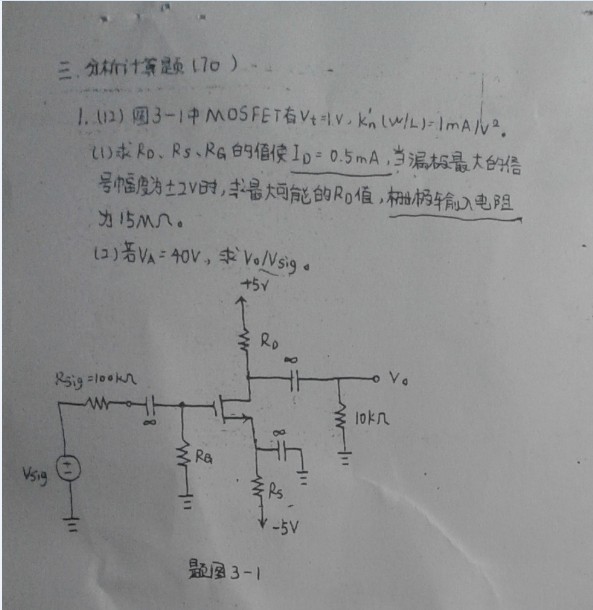 三. 分析计算题 (70)
1. (12) 图3-1中MOSFET有Vt=1V, k'n(W/L)=1mA/V².
(1)求RD、RS、RG的值使ID=0.5mA,当漏极最大的信
号幅度为±2V时,求最大可能的RD值,栅极输入电阻
为15MΩ。
(2)若VA=40V,求Vo/Vsig。
+5V
RD
∞
Vo
Rsig=100kΩ
∞
10kΩ
∞
RG
Vsig
RS
-5V
题图3-1